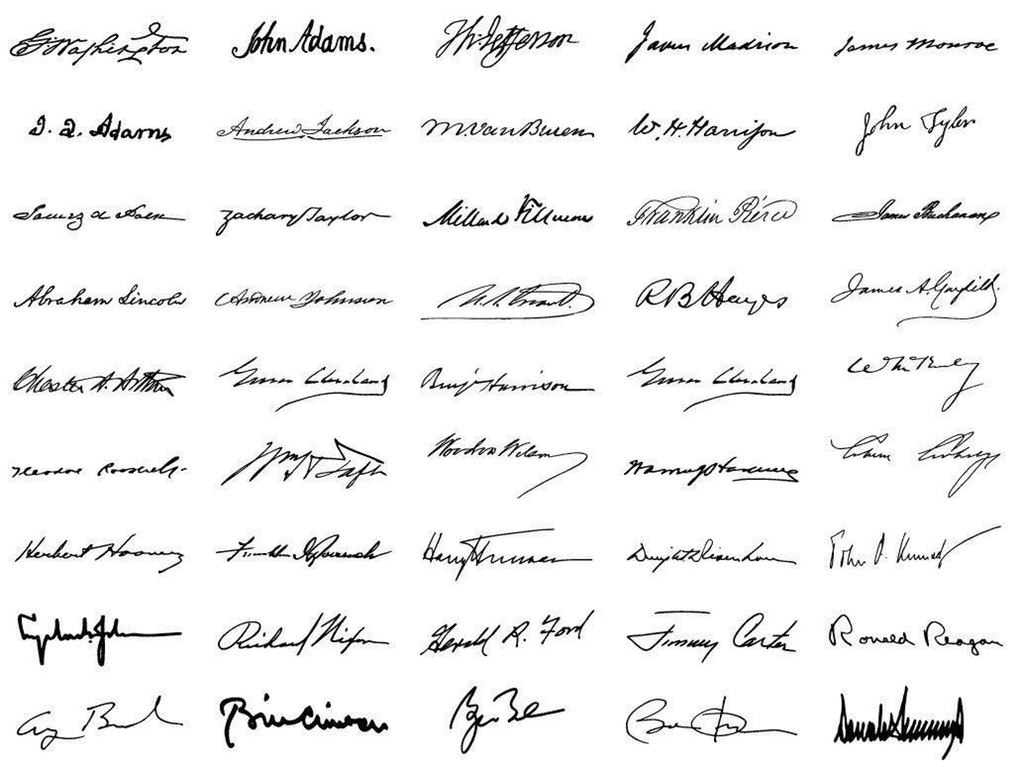 G. Washington John Adams. Th. Jefferson James Madison James Monroe
J. Q. Adams Andrew Jackson M Van Buren W. H. Harrison John Tyler
James K Polk Zachary Taylor Millard Fillmore Franklin Pierce James Buchanan
Abraham Lincoln Andrew Johnson U. S. Grant. R B Hayes James A. Garfield.
Chester A. Arthur Grover Cleveland Benj Harrison Grover Cleveland Wm McKinley
Theodore Roosevelt Wm H Taft Woodrow Wilson Warren G Harding Calvin Coolidge
Herbert Hoover Franklin D Roosevelt Harry Truman Dwight D Eisenhower John F. Kennedy
Lyndon B. Johnson Richard Nixon Gerald R. Ford Jimmy Carter Ronald Reagan
G Bush Bill Clinton